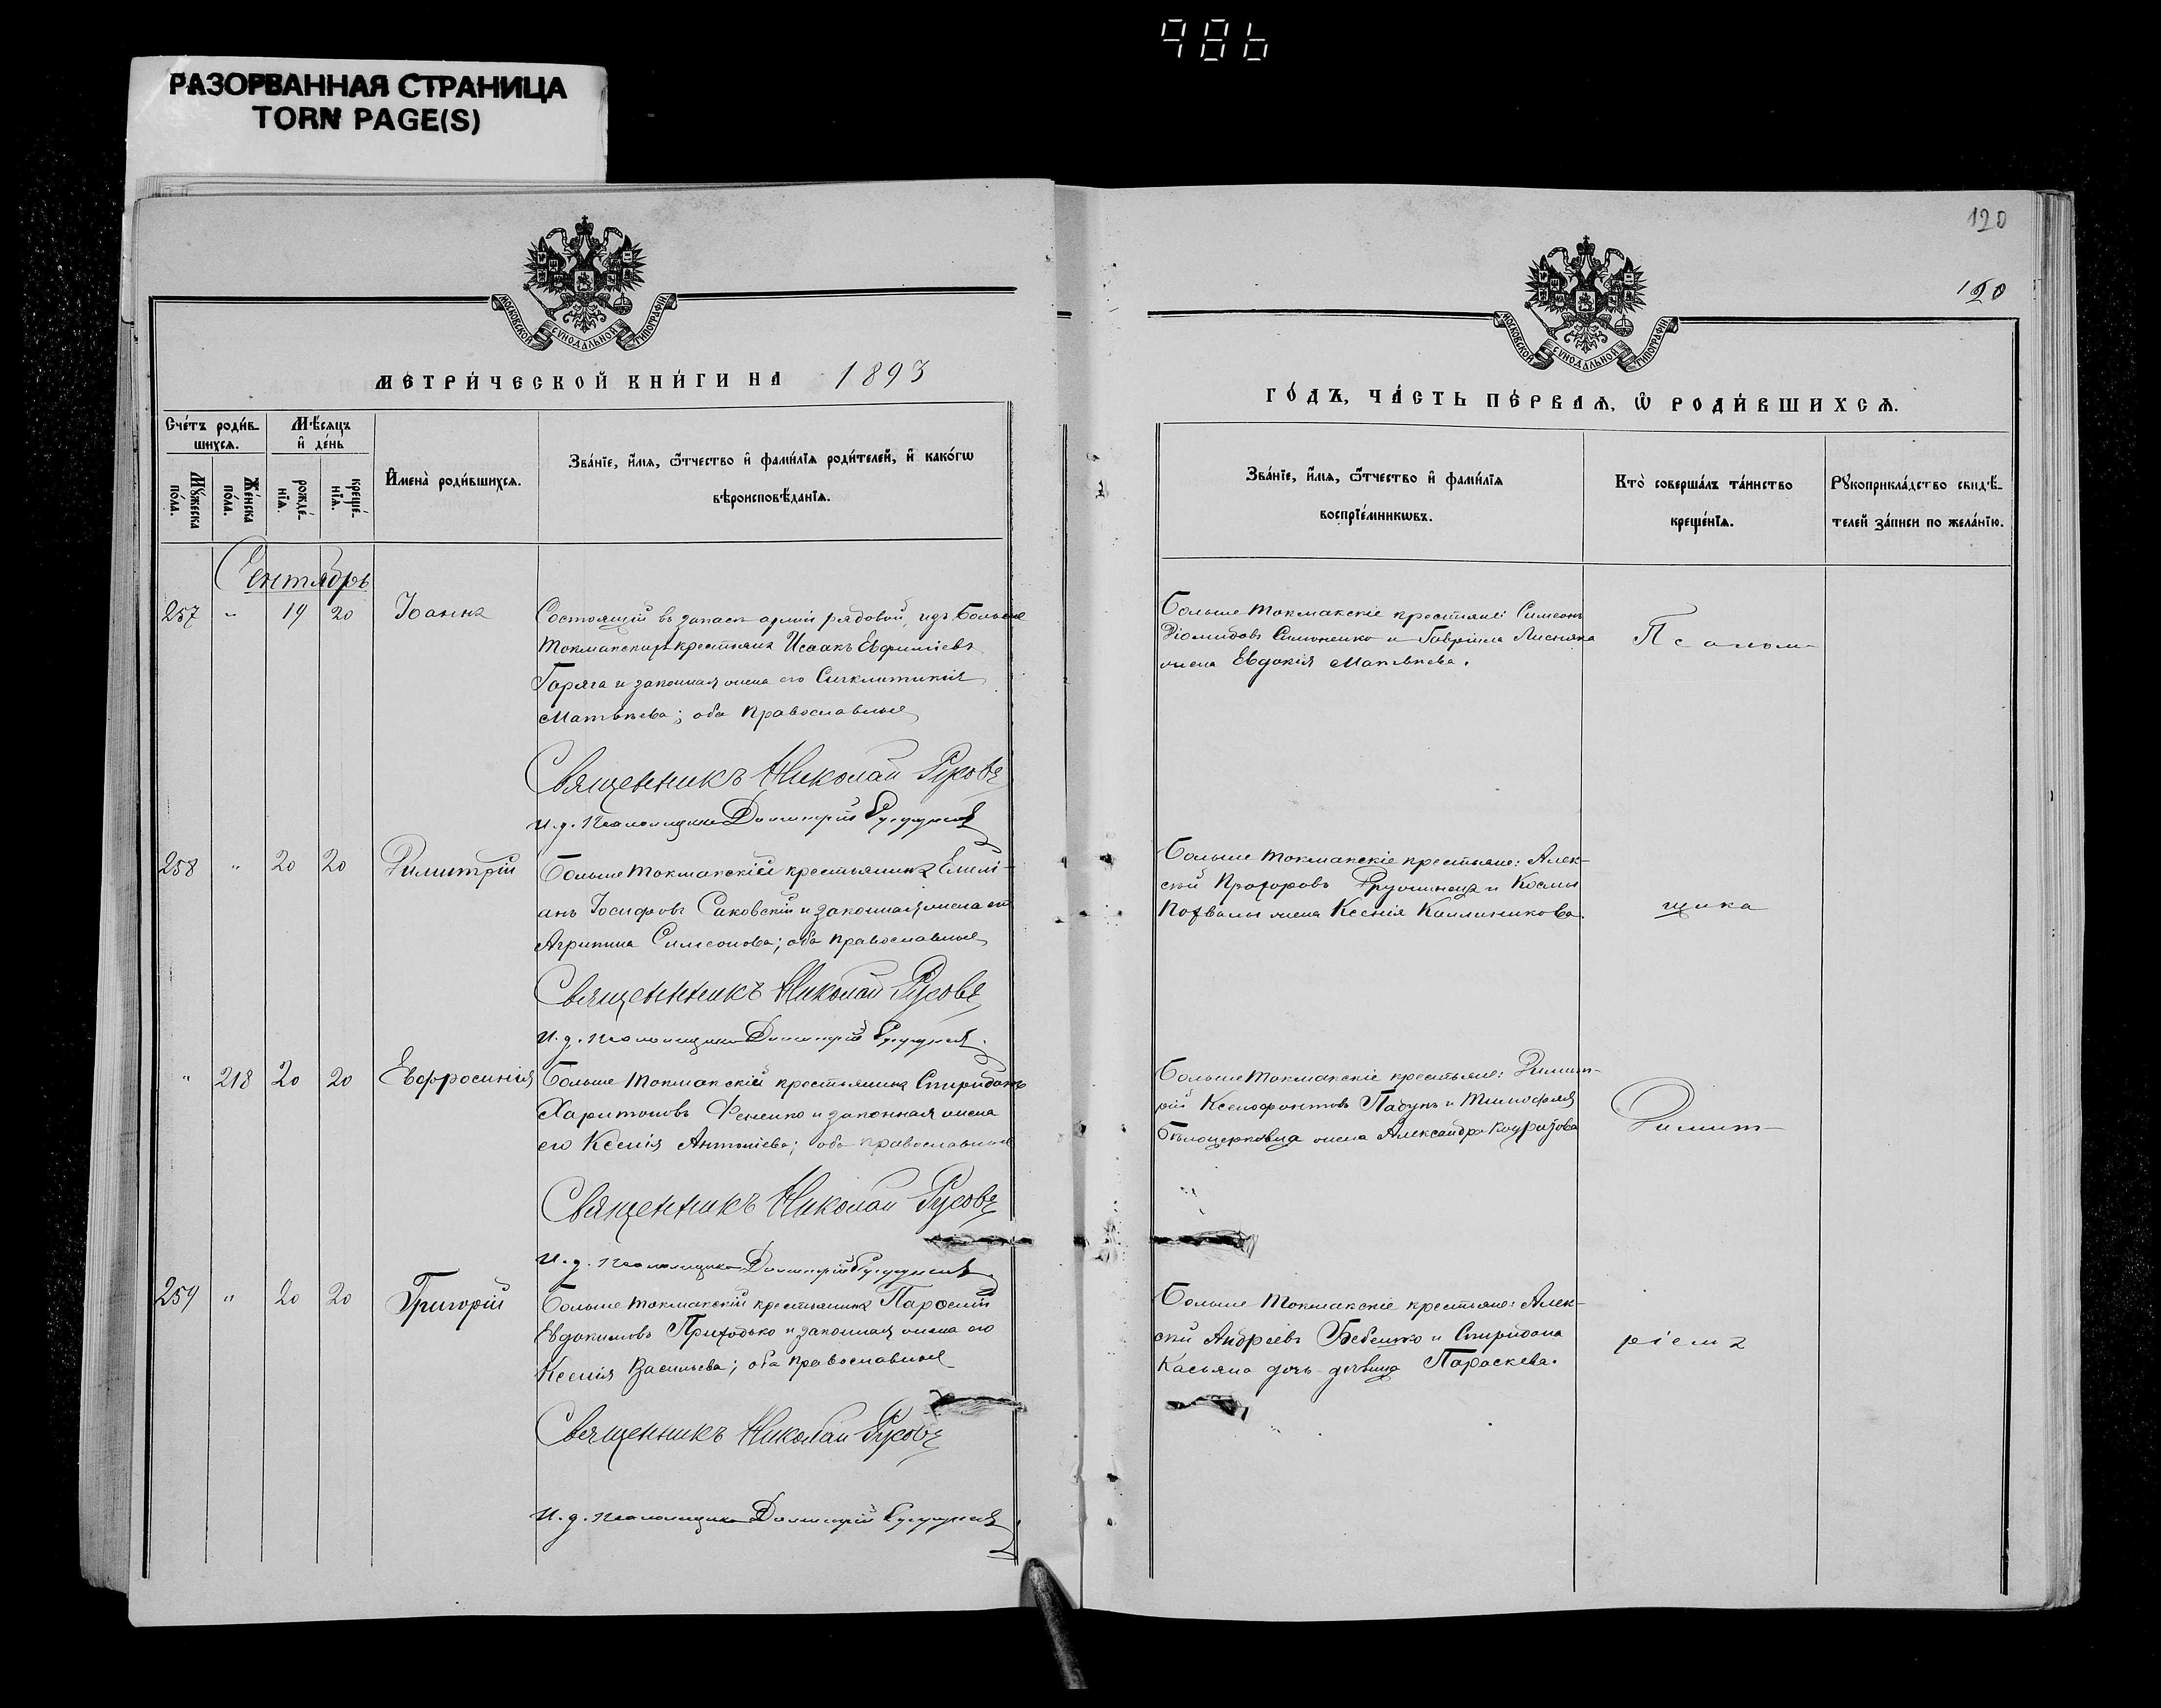 986
РАЗОРВАННАЯ СТРАНИЦА
TORN PAGE(S)
МОСКОВСКОЙ СѴНОДАЛЬНОЙ ТИПОГРАФІИ
МЕТРИ́ЧЕСКОЙ КНИ́ГИ НА 1893
Сче́тъ роди́в-
шихсѧ.
Мѣ́сѧцъ
и҆ де́нь
Мꙋ́жеска
по́ла.
Же́нска
по́ла.
рожде́-
нїѧ.
креще́-
нїѧ.
И҆мена̀ роди́вшихсѧ.
Зва́нїе, и҆́мѧ, ѻ҆́тчество и҆ фами́лїѧ роди́телей, и҆ како́гѡ
вѣроисповѣ́данїѧ.
Сентябрь
257 " 19 20 Іоаннъ
Состоящій въ запасѣ арміи рядовой, изъ Больше
Токмакскихъ крестьянъ Исаакъ Евфиміевъ
Гаряга и законная жена его Сигклитикія
Матвѣева; оба православные
Священникъ Николай Русовъ
И. д. псаломщика Димитрій
258 " 20 20 Димитрій
Больше Токмакскій крестьянинъ Емилі-
анъ Іосифовъ Саковскій и законная жена его
Агрипина Симеонова; оба православные
Священникъ Николай Русовъ
И. д. псаломщика Димитрій
" 218 20 20 Евфросинія
Больше Токмакскій крестьянинъ Спиридонъ
Харитоновъ Фененко и законная жена
его Ксенія Антоніева; оба православные
Священникъ Николай Русовъ
И. д. псаломщика Димитрій
259 " 20 20 Григорій
Больше Токмакскій крестьянинъ Парфеній
Евдокимовъ Приходько и законная жена его
Ксенія Васильева; оба православные
Священникъ Николай Русовъ
И. д. псаломщика Димитрій
120
120
МОСКОВСКОЙ СѴНОДАЛЬНОЙ ТИПОГРАФІИ
ГО́ДЪ, ЧА́СТЬ ПЕ́РВАѦ, Ѡ҆ РОДИ́ВШИХСѦ.
Зва́нїе, и҆́мѧ, ѻ҆́тчество и҆ фами́лїѧ
воспрїе́мникѡвъ.
Кто̀ соверша́лъ та́инство
креще́нїѧ.
Рꙋкоприкла́дство свидѣ́-
телей за́писи по жела́нїю.
Больше Токмакскіе крестьяне: Симеонъ
Діомидовъ Симоненко и Гавріила Лисняка
жена Евдокія Матвѣева.
Псалом-
Больше Токмакскіе крестьяне: Алек-
сѣй Прохоровъ и Космы
Похвалы жена Ксенія Каллиникова.
щика
Больше Токмакскіе крестьяне: Димит-
рій Ксенофонтовъ Падунъ и Тимофея
Бѣлоцерковца жена Александра Кодратова
Димит-
Больше Токмакскіе крестьяне: Алек-
сѣй Андреевъ Бебешко и Спиридона
Касьяна дочь-дѣвица Параскева.
ріемъ